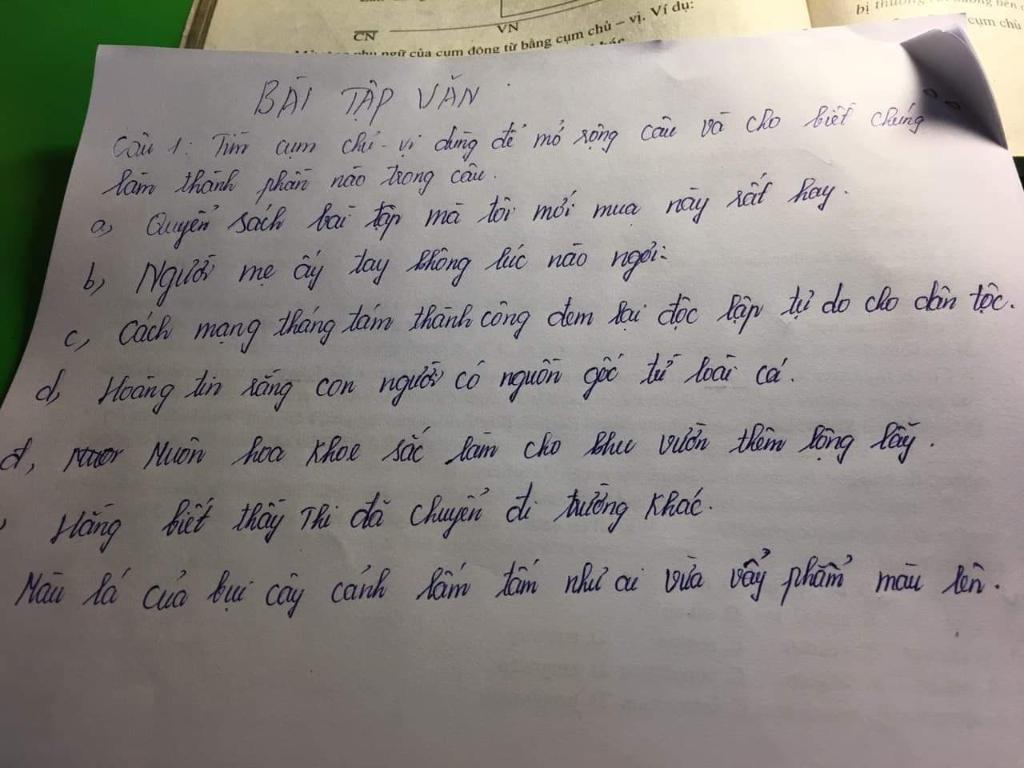 CN
VN
ngữ của cụm động từ bằng cụm chủ – vị. Ví dụ:
cụm chủ
BÀI TẬP VĂN
Câu 1: Tìm cụm chủ - vị dùng để mở rộng câu và cho biết chúng
làm thành phần nào trong câu.
a, Quyển sách bài tập mà tôi mới mua này rất hay.
b, Người mẹ ấy tay không lúc nào ngơi.
c, Cách mạng tháng tám thành công đem lại độc lập tự do cho dân tộc.
d, Hoàng tin rằng con người có nguồn gốc từ loài cá.
đ, Muôn hoa khoe sắc làm cho khu vườn thêm lộng lẫy.
Hằng biết thầy Thi đã chuyển đi trường khác.
Màu lá của bụi cây cảnh lấm tấm như ai vừa vẩy phẩm màu lên.